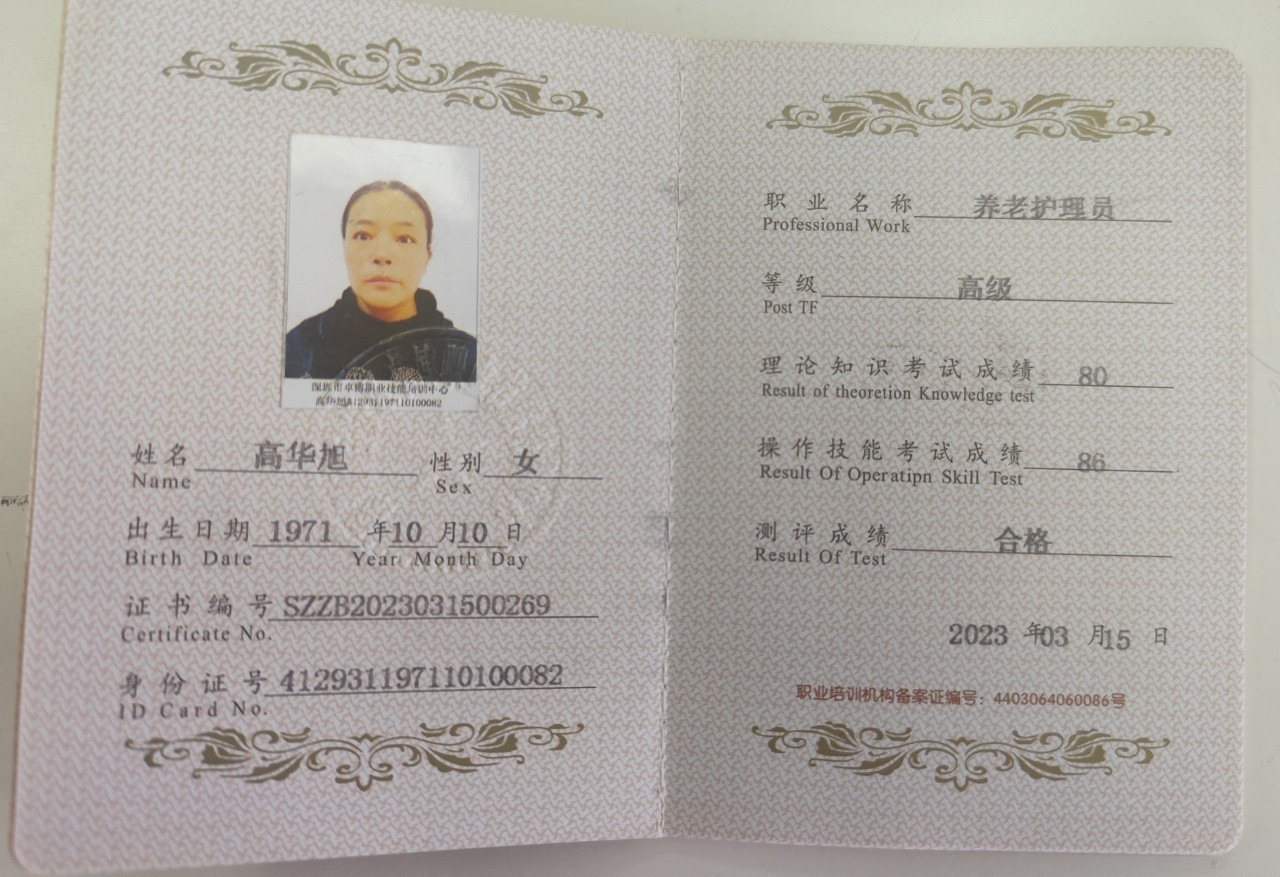 深圳市卓博职业技能培训中心
高华旭412931197110100082
姓名 高华旭 性别 女
Name Sex
出生日期 1971 年10 月10 日
Birth Date Year Month Day
证书编号 SZZB2023031500269
Certificate No.
身份证号 412931197110100082
ID Card No.
职业名称 养老护理员
Professional Work
等级 高级
Post TF
理论知识考试成绩 80
Result of theoretion Knowledge test
操作技能考试成绩 86
Result Of Operatipn Skill Test
测评成绩 合格
Result Of Test
2023 年03 月15 日
职业培训机构备案证编号：4403064060086号